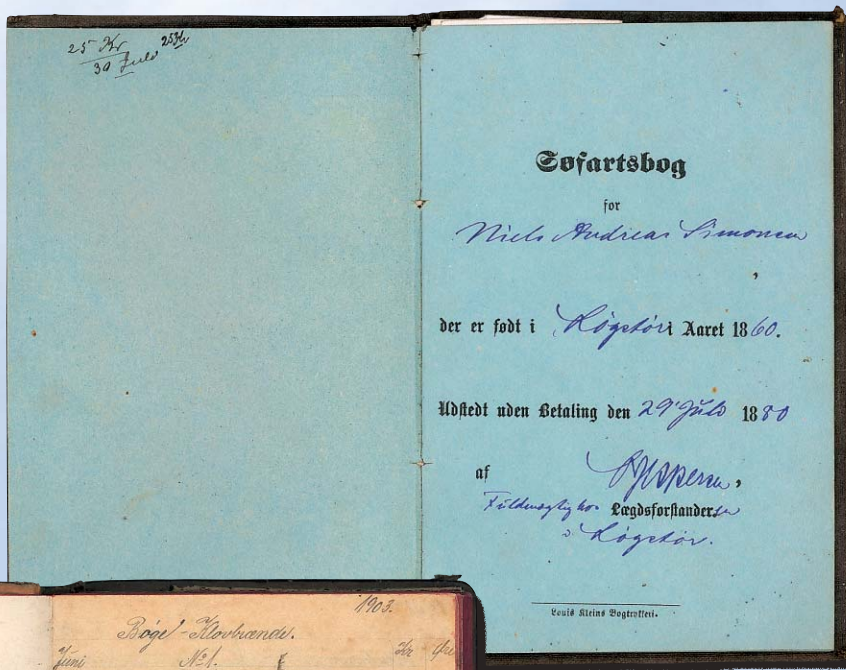 25 Kr 25 Kr
30 Juli
Søfartsbog
for
Niels Andreas Simonsen
der er født i Løgstør i Aaret 1860.
Udstedt uden Betaling den 29 Juli 1880
af Jespersen,
Fuldmægtig hos Lægdsforstanderen
i Løgstør.
Louis Kleins Bogtrykkeri.
1903.
Bøge-Klovbrænde.
Juni No 1. Kr Øre